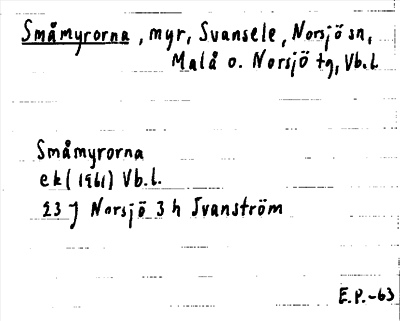 Småmyrorna, myr, Svansele, Norsjö sn,
Malå o. Norsjö tg, Vb.l.
Småmyrorna
ek (1961) Vb.l.
23 J Norsjö 3 h Ivanström
E.P.-63